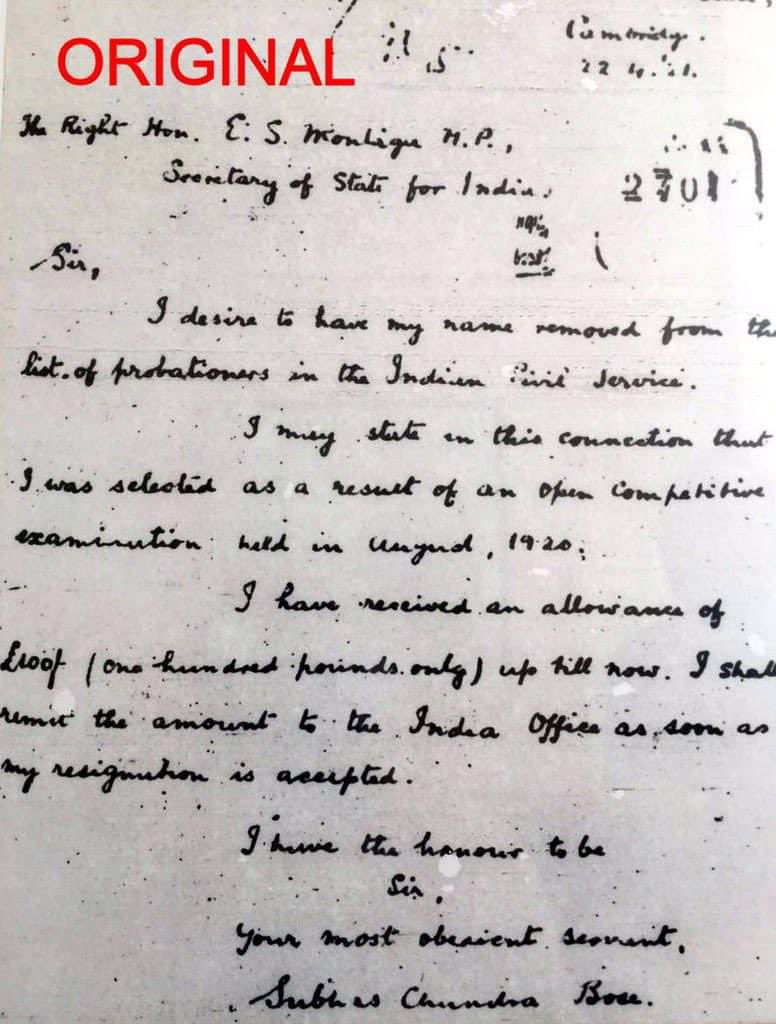 ORIGINAL
Cambridge.
22.4.21.
The Right Hon. E. S. Montagu M.P.,
Secretary of State for India.
2701
Sir,
I desire to have my name removed from the
list of probationers in the Indian Civil Service.
I may state in this connection that
I was selected as a result of an open competitive
examination held in August, 1920.
I have received an allowance of
£100/- (one hundred pounds only) up till now. I shall
remit the amount to the India Office as soon as
my resignation is accepted.
I have the honour to be
Sir,
Your most obedient servant,
Subhas Chandra Bose.